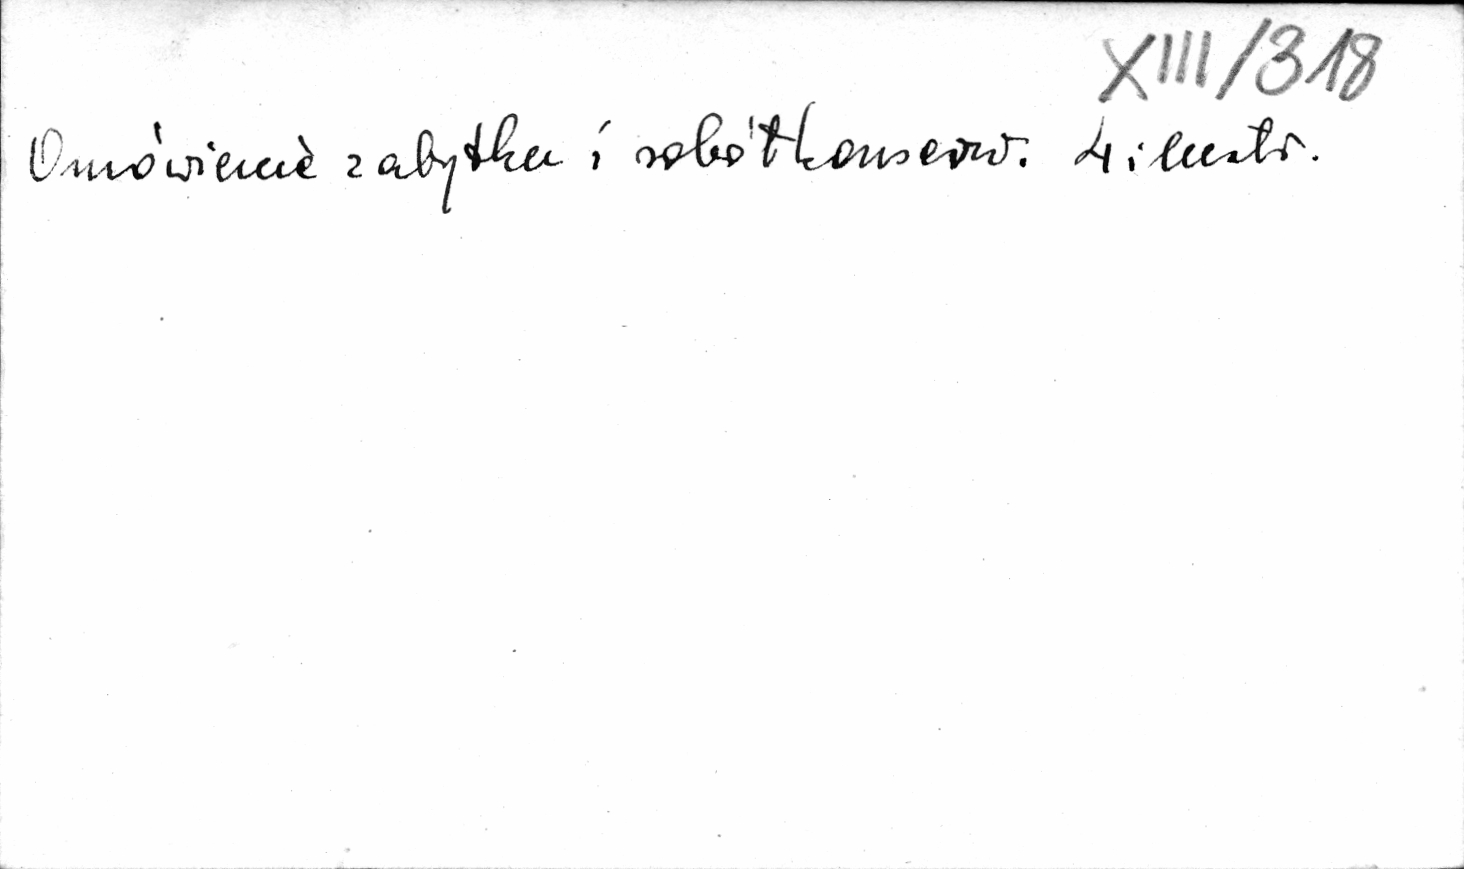 XIII/318
Omówienie zabytku i robót konserw. 4 ilustr.